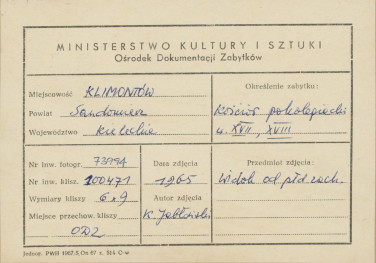 MINISTERSTWO KULTURY I SZTUKI
Ośrodek Dokumentacji Zabytków
Miejscowość KLIMONTÓW
Powiat Sandomierz
Województwo Kieleckie
Określenie zabytku:
Kościół pokolegiacki
XVII, XVIII
Nr inw. fotogr. 73194
Nr inw. klisz. 100471
Wymiary kliszy 6x9
Miejsce przechow. kliszy
ODZ
Data zdjęcia
1965
Autor zdjęcia
K. Jabłoński
Przedmiot zdjęcia:
Widok od płd zach.
Jednor. PWH 1967.8,Cn 67 z. 314 C-w